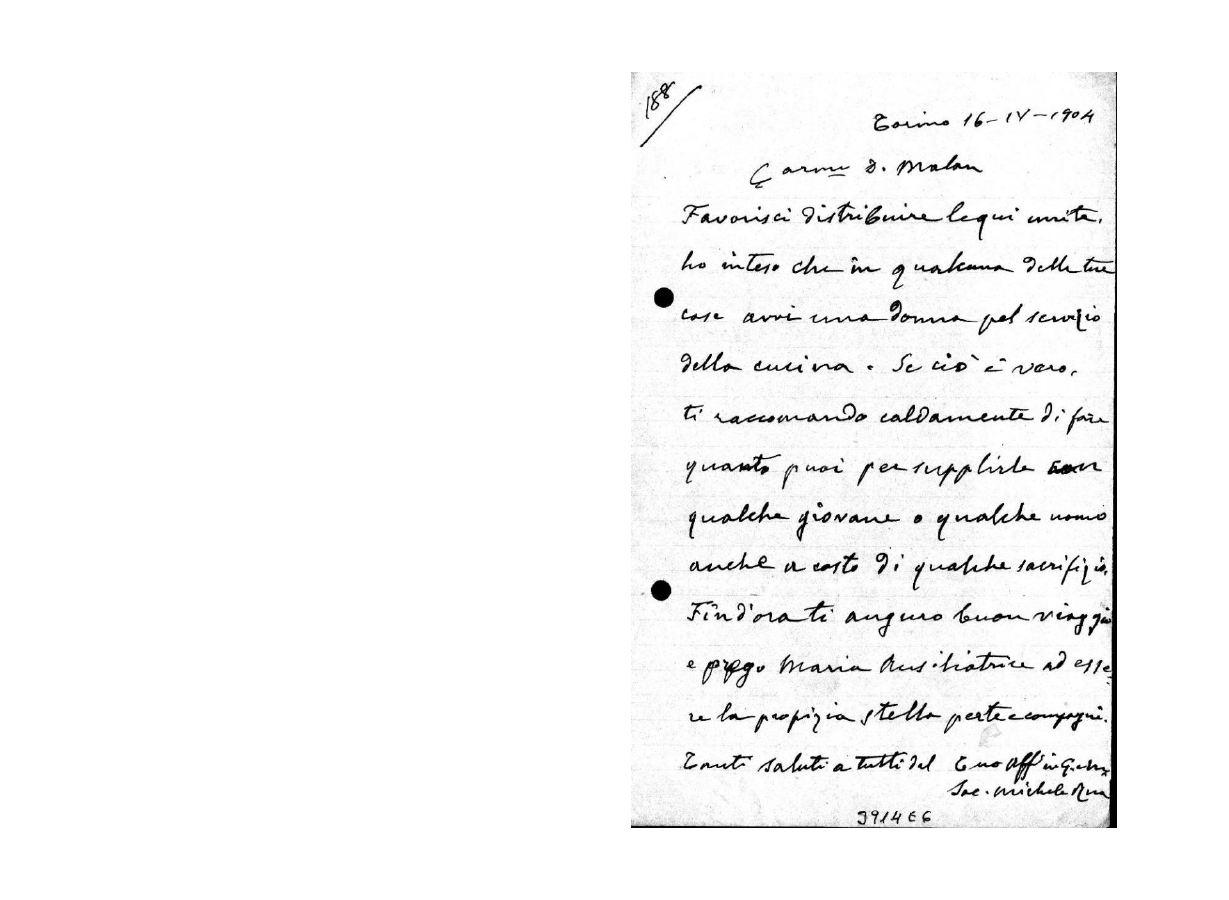 188
Torino 16-IV-1904
Carmo D. Malan
Favorisci distribuire le qui unite.
ho inteso che in qualcuna delle tue
case avvi una donna pel servizio
della cucina. Se ciò è vero,
ti raccomando caldamente di fare
quanto puoi per supplirle con
qualche giovane o qualche uomo
anche a costo di qualche sacrifizio.
Fin d'ora ti auguro buon viaggio
e prego Maria Ausiliatrice ad esse
re la propizia stella per te e compagni.
Tanti saluti a tutti dal Tuo aff in G. e M.
Sac. Michele Rua
3914E6